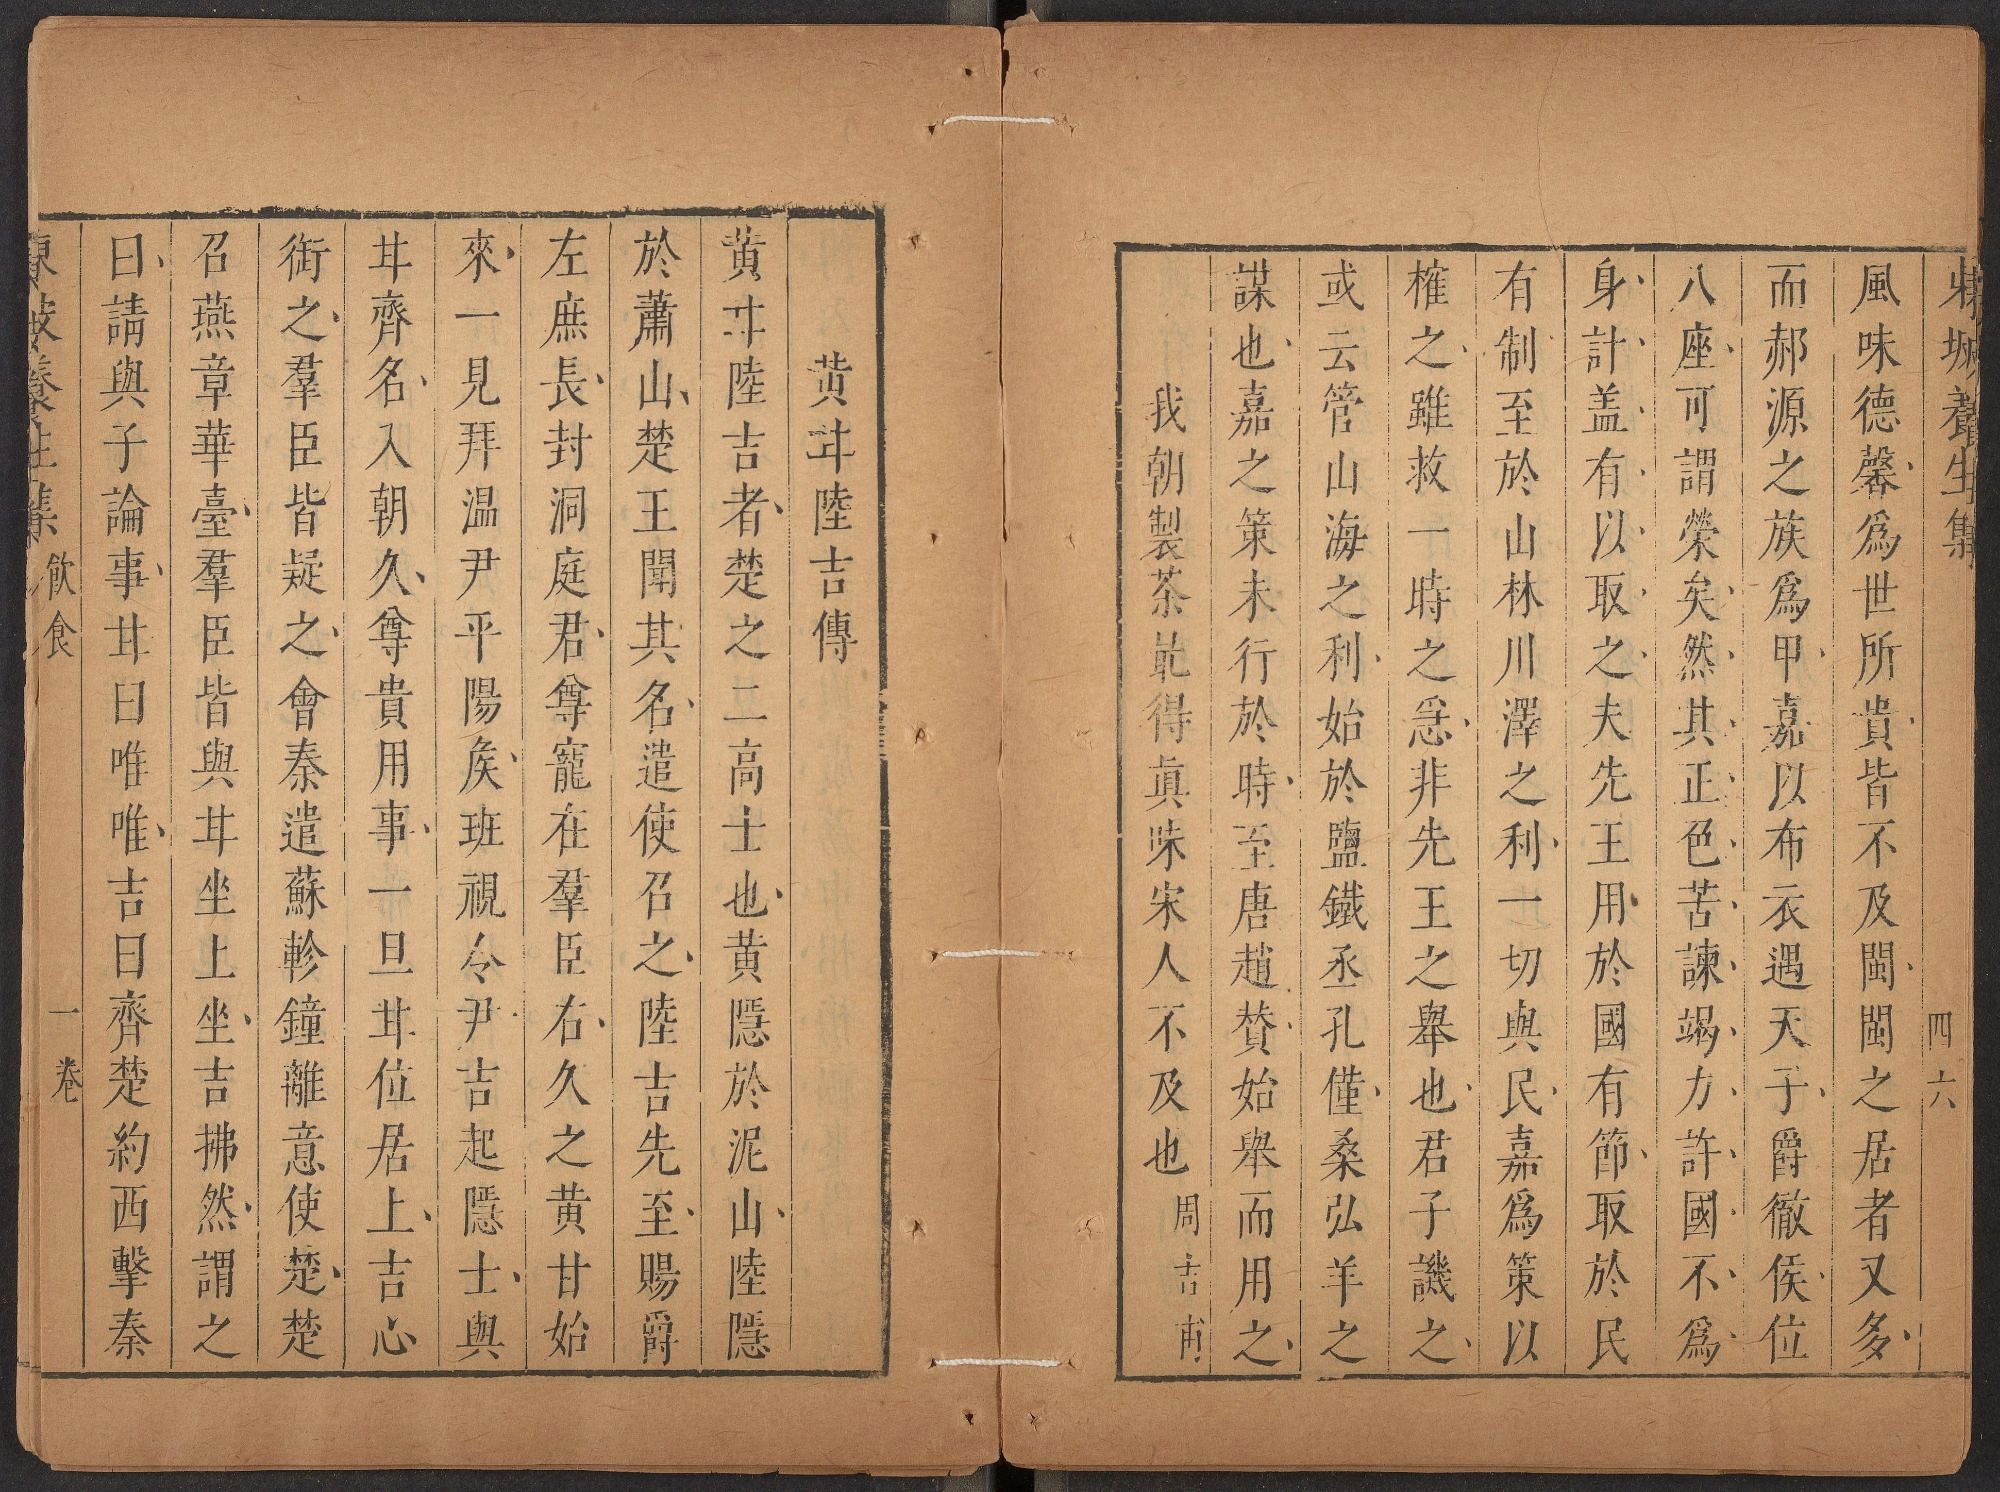 東坡養生集
四六
風味德馨爲世所貴皆不及閩閩之居者又多
而郝源之族爲甲嘉以布衣遇天子爵徹侯位
八座可謂榮矣然其正色苦諫竭力許國不爲
身計盖有以取之夫先王用於國有節取於民
有制至於山林川澤之利一切與民嘉爲策以
榷之雖救一時之急非先王之舉也君子譏之
或云管山海之利始於鹽鐵丞孔僅桑弘羊之
謀也嘉之策未行於時至唐趙賛始舉而用之
我朝製茶㝡得真味宋人不及也 周吉甫
黄甘陸吉傳
黄甘陸吉者楚之二高士也黄隱於泥山陸隱
於蕭山楚王聞其名遣使召之陸吉先至賜爵
左庶長封洞庭君尊寵在羣臣右久之黄甘始
來一見拜温尹平陽侯班視令尹吉起隱士與
甘齊名入朝久尊貴用事一旦甘位居上吉心
銜之羣臣皆疑之會秦遣蘇軫鐘離意使楚楚
召燕章華臺羣臣皆與甘坐上坐吉拂然謂之
曰請與子論事甘曰唯唯吉曰齊楚約西擊秦
東坡養生集 飲食 一卷